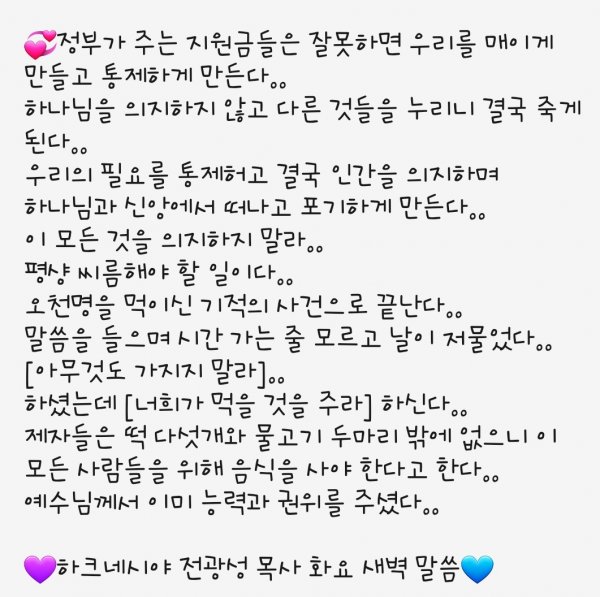 💞정부가 주는 지원금들은 잘못하면 우리를 매이게
만들고 통제하게 만든다。。
하나님을 의지하지 않고 다른 것들을 누리니 결국 죽게
된다。。
우리의 필요를 통제허고 결국 인간을 의지하며
하나님과 신앙에서 떠나고 포기하게 만든다。。
이 모든 것을 의지하지 말라。。
평샹 씨름해야 할 일이다。。
오천명을 먹이신 기적의 사건으로 끝난다。。
말씀을 들으며 시간 가는 줄 모르고 날이 저물었다。。
[아무것도 가지지 말라]。。
하셨는데 [너희가 먹을 것을 주라] 하신다。。
제자들은 떡 다섯개와 물고기 두마리 밖에 없으니 이
모든 사람들을 위해 음식을 사야 한다고 한다。。
예수님께서 이미 능력과 권위를 주셨다。。
💜하크네시야 전광성 목사 화요 새벽 말씀💙